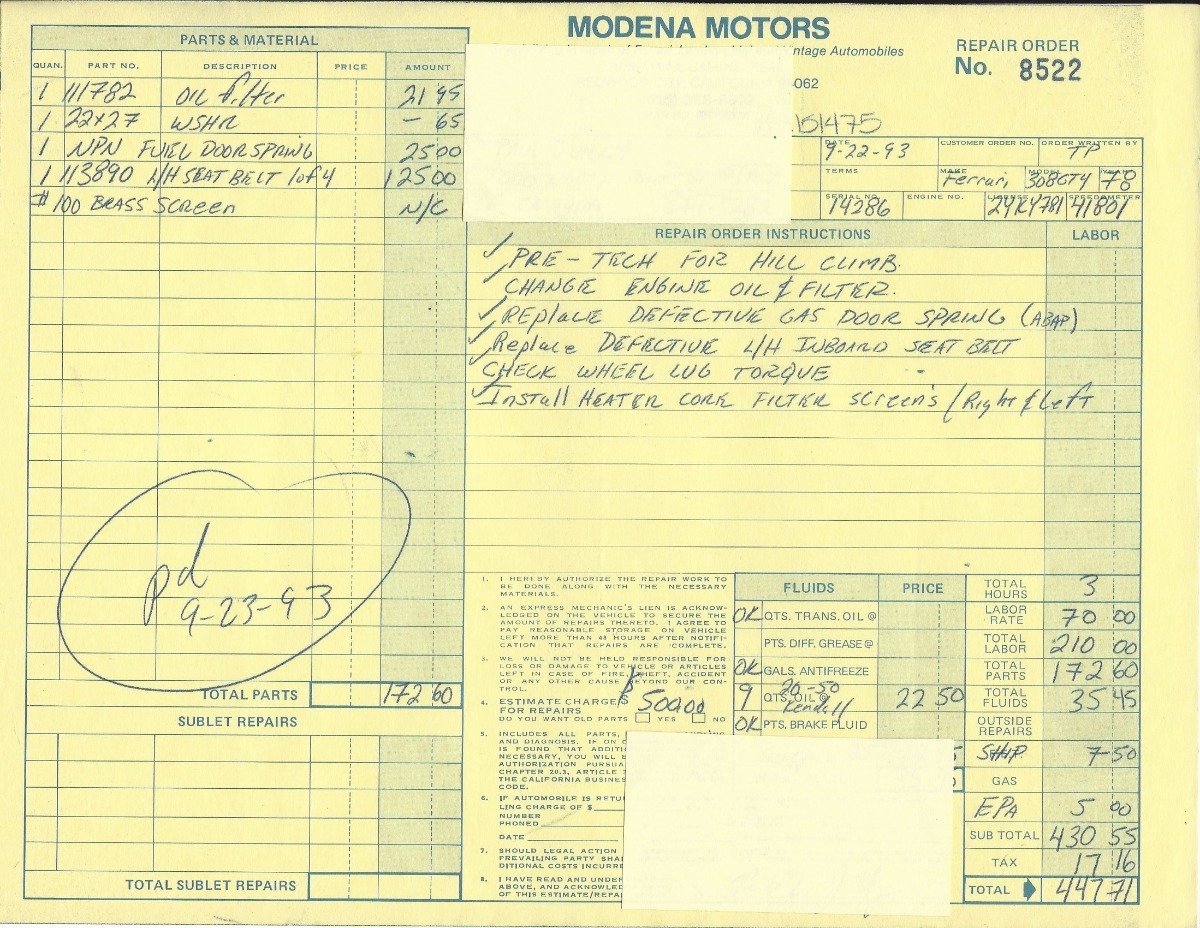 MODENA MOTORS
ntage Automobiles
062
REPAIR ORDER
No. 8522
151475
PARTS & MATERIAL
QUAN. PART NO. DESCRIPTION PRICE AMOUNT
1 111782 OIL filter 21 95
1 22x27 WSHR - 65
1 NPN FUEL DOOR SPRING 25 00
1 113890 L/H SEAT BELT 1 of 4 125 00
#100 BRASS SCREEN N/C
DATE 9-22-93 CUSTOMER ORDER NO. ORDER WRITTEN BY TP
TERMS MAKE Ferrari MODEL 308GT4 YEAR 78
SERIAL NO. 14286 ENGINE NO. LICENSE 24K4781 SPEEDOMETER 41801
REPAIR ORDER INSTRUCTIONS LABOR
✓ PRE-TECH FOR HILL CLIMB.
CHANGE ENGINE OIL & FILTER.
✓ REPlacE DEFECTIVE GAS DOOR SPRING (ASAP)
✓ Replace DEFECTIVE L/H INBOARD SEAT BELT
CHECK WHEEL LUG TORQUE
✓ Install HEATER CORE FILTER SCREEN'S / Right & Left
pd
9-23-93
TOTAL PARTS 172 60
SUBLET REPAIRS
TOTAL SUBLET REPAIRS
1. I HEREBY AUTHORIZE THE REPAIR WORK TO
BE DONE ALONG WITH THE NECESSARY
MATERIALS.
2. AN EXPRESS MECHANIC'S LIEN IS ACKNOW-
LEDGED ON THE VEHICLE TO SECURE THE
AMOUNT OF REPAIRS THERETO. I AGREE TO
PAY REASONABLE STORAGE ON VEHICLE
LEFT MORE THAN 48 HOURS AFTER NOTIFI-
CATION THAT REPAIRS ARE COMPLETE.
3. WE WILL NOT BE HELD RESPONSIBLE FOR
LOSS OR DAMAGE TO VEHICLE OR ARTICLES
LEFT IN CASE OF FIRE, THEFT, ACCIDENT
OR ANY OTHER CAUSE BEYOND OUR CON-
TROL.
4. ESTIMATE CHARGE $ 500.00
FOR REPAIRS
DO YOU WANT OLD PARTS YES NO
5. INCLUDES ALL PARTS,
AND DIAGNOSIS. IF ON
IS FOUND THAT ADDITI
NECESSARY, YOU WILL
AUTHORIZATION PURSUA
CHAPTER 20.3, ARTICLE
THE CALIFORNIA BUSINES
CODE.
6. IF AUTOMOBILE IS RETU
LING CHARGE OF $
NUMBER
PHONED
DATE
7. SHOULD LEGAL ACTION
PREVAILING PARTY SHA
DITIONAL COSTS INCURR
8. I HAVE READ AND UNDER
ABOVE, AND ACKNOWLED
OF THIS ESTIMATE/REPA
FLUIDS PRICE
OK QTS. TRANS. OIL @
PTS. DIFF. GREASE @
OK GALS. ANTIFREEZE
9 QTS. OIL @ 20-50 Kendall 22 50
OK PTS. BRAKE FLUID
TOTAL HOURS 3
LABOR RATE 70 00
TOTAL LABOR 210 00
TOTAL PARTS 172 60
TOTAL FLUIDS 35 45
OUTSIDE REPAIRS
SHIP 7-50
GAS
EPA 5 00
SUB TOTAL 430 55
TAX 17 16
TOTAL 447 71